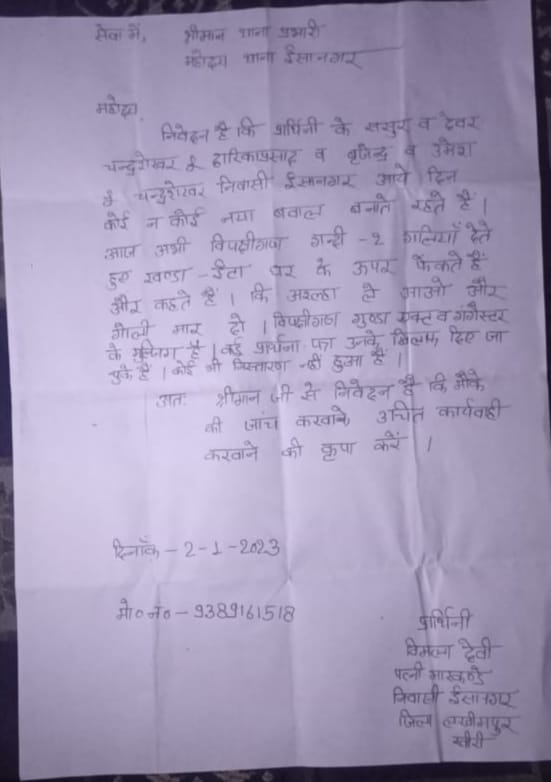 सेवा में, श्रीमान थाना प्रभारी
महोदय थाना ईसानगर
महोदय,
निवेदन है कि प्रार्थिनी के ससुर व देवर
चन्द्रशेखर S/ द्वारिकाप्रसाद व बृजेन्द्र व उमेश
S/ चन्द्रशेखर निवासी ईसानगर आये दिन
कोई न कोई नया बवाल बनाते रहते हैं।
आज अभी विपक्षीगण गन्दी -2 गालियाँ देते
हुए खण्डा -ईंटा घर के ऊपर फेंकते हैं
और कहते हैं। कि असलहा ले आवो और
गोली मार दो। विपक्षीगण गुण्डा एक्ट व गैंगेस्टर
के मुल्जिम है। कई प्रार्थना पत्र उनके खिलाफ दिए जा
चुके हैं। कोई भी निस्तारण नहीं हुआ है।
अतः श्रीमान जी से निवेदन है कि मौके
की जांच करवाने, उचित कार्यवाही
करवाने की कृपा करें।
दिनाँक - 2-1-2023
मो०न० - 9389161518
प्रार्थिनी
विमला देवी
पत्नी मारकण्डे
निवासी ईसानगर
जिला लखीमपुर
खीरी